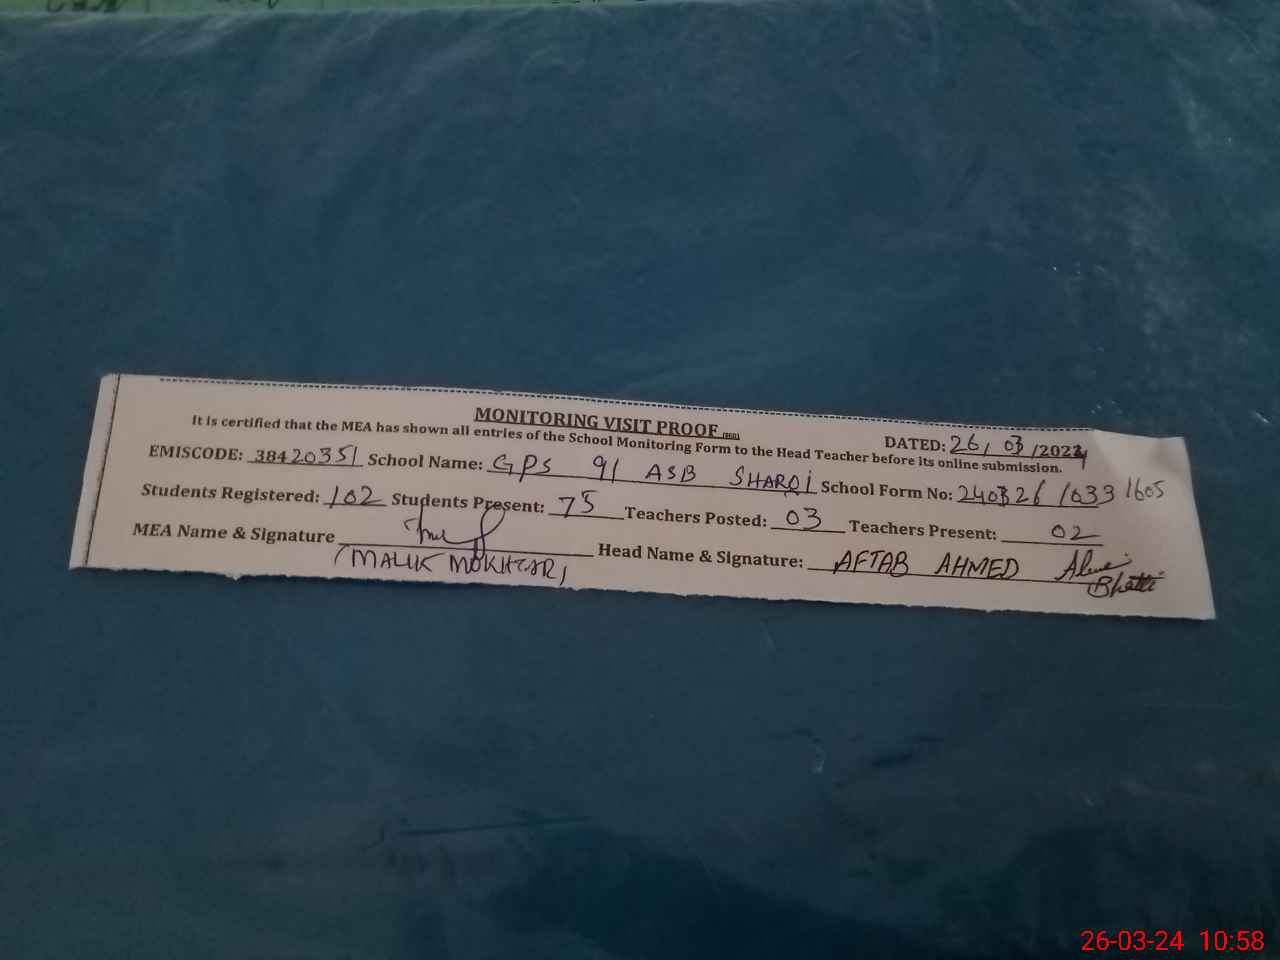 MONITORING VISIT PROOF
It is certified that the MEA has shown all entries of the School Monitoring Form to the Head Teacher before its online submission.
DATED: 26/03/2024
EMISCODE: 38420351 School Name: GPS 91 ASB SHARQI School Form No: 240326 1033 1605
Students Registered: 102 Students Present: 75 Teachers Posted: 03 Teachers Present: 02
MEA Name & Signature Head Name & Signature: AFTAB AHMED
(MALIK MOKHTAR) Bhatti
26-03-24 10:58